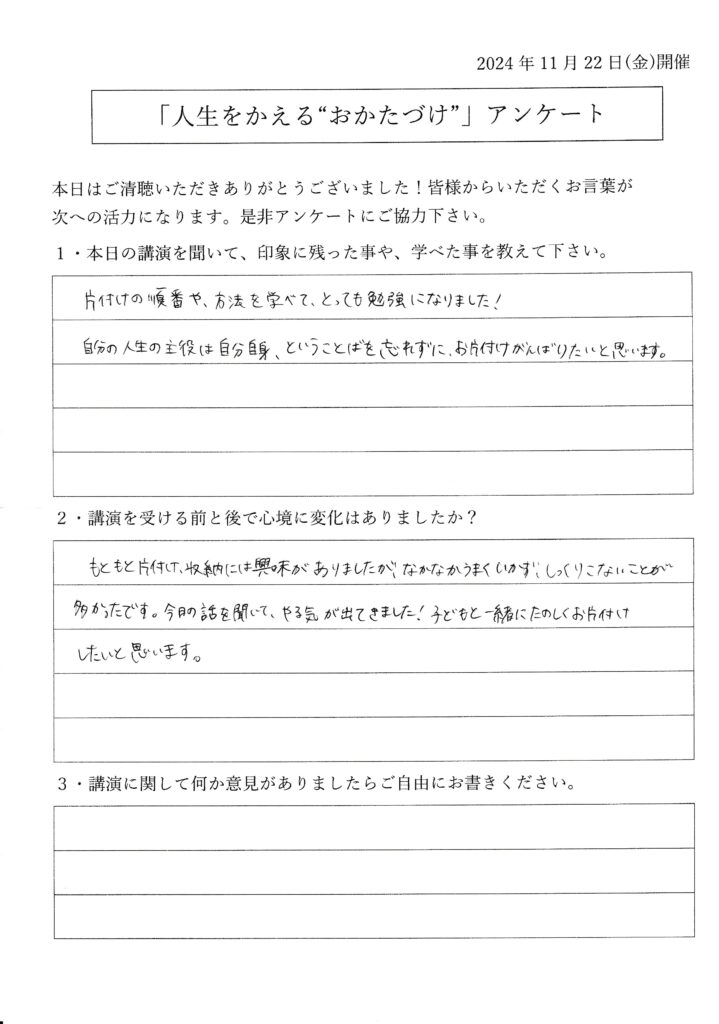 2024 年 11 月 22 日(金)開催
「人生をかえる“おかたづけ”」アンケート
本日はご清聴いただきありがとうございました！皆様からいただくお言葉が
次への活力になります。是非アンケートにご協力下さい。
１・本日の講演を聞いて、印象に残った事や、学べた事を教えて下さい。
片付けの順番や、方法を学べて、とっても勉強になりました！
自分の人生の主役は自分自身、ということばを忘れずに、お片付けがんばりたいと思います。
２・講演を受ける前と後で心境に変化はありましたか？
もともと片付け、収納には興味がありましたが、なかなかうまくいかず、しっくりこないことが
多かったです。今日の話を聞いて、やる気が出てきました！子どもと一緒にたのしくお片付け
したいと思います。
３・講演に関して何か意見がありましたらご自由にお書きください。